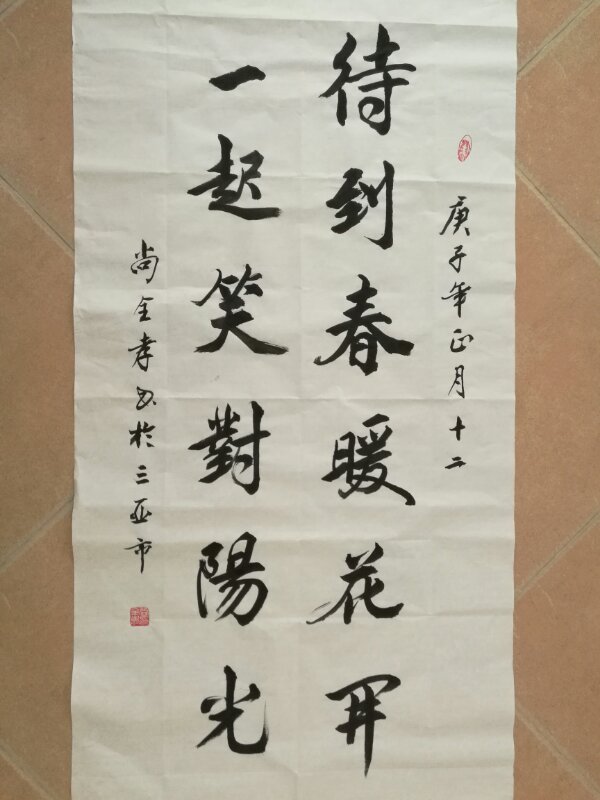 庚子年正月十二
待到春暖花开
一起笑對陽光
尚全孝书於三亚市